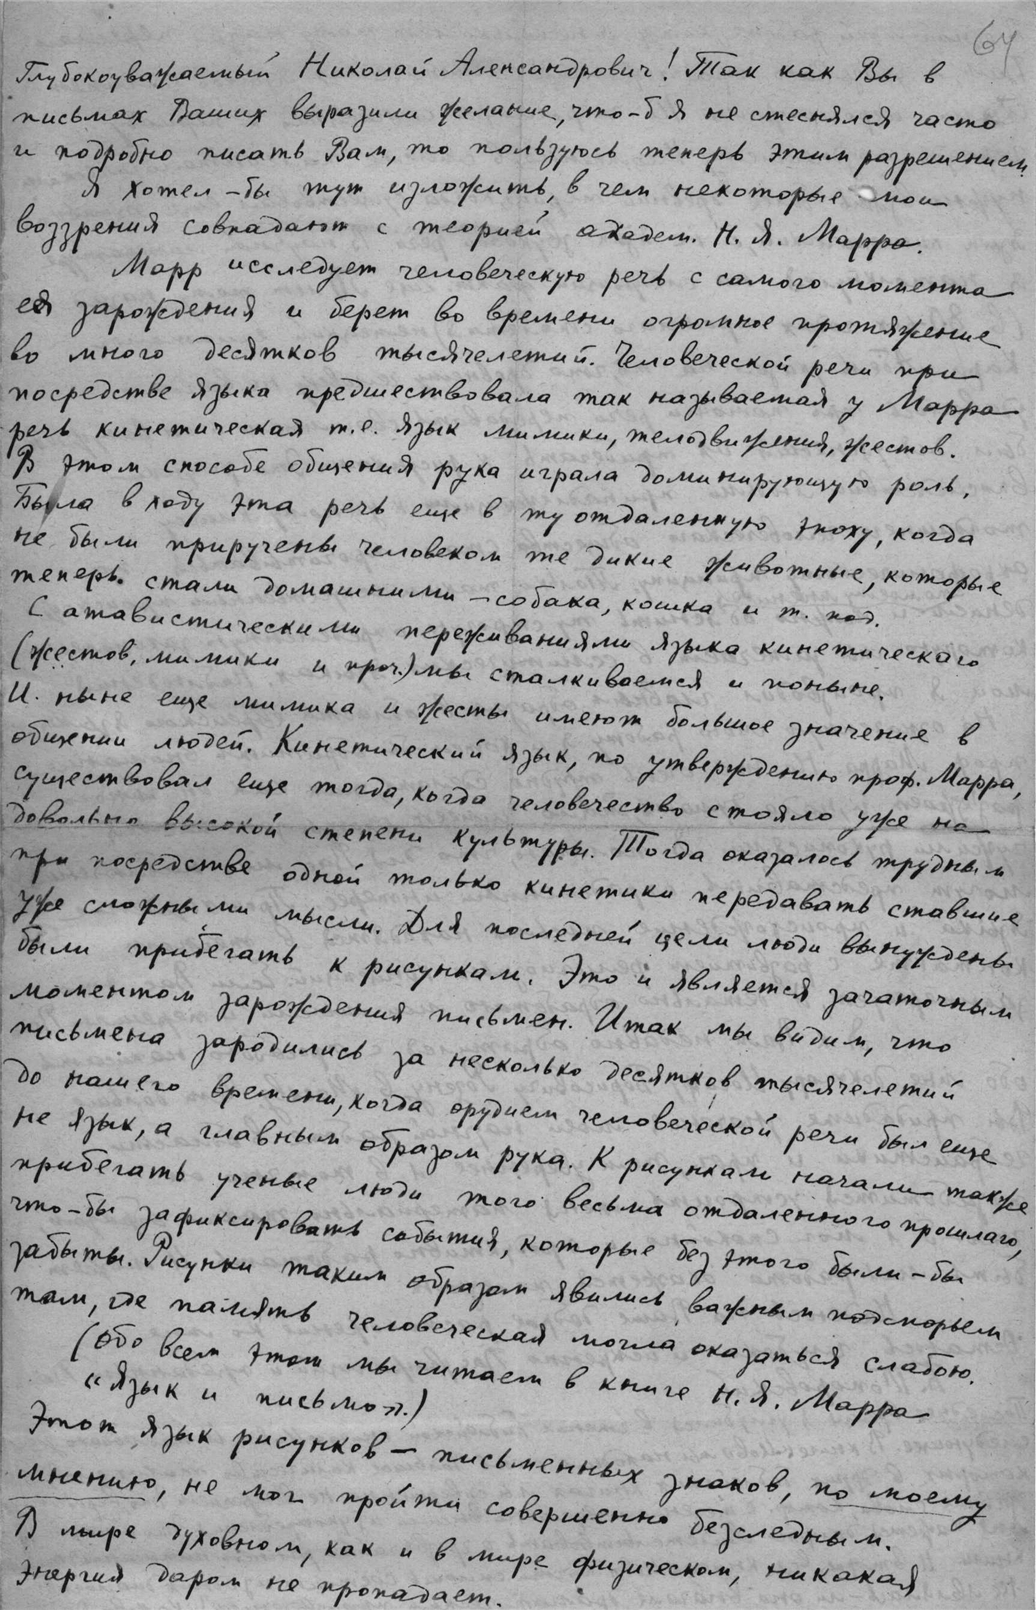 64
Глубокоуважаемый Николай Александрович! Так как Вы в
письмах Ваших выразили желание, что-б я не стеснялся часто
и подробно писать Вам, то пользуюсь теперь этим разрешением
Я хотел-бы тут изложить, в чем некоторые мои
воззрения совпадают с теорией академ. Н. Я. Марра.
Марр исследует человеческую речь с самого момента
ея зарождения и берет во времени огромное протяжение
во много десятков тысячелетий. Человеческой речи при
посредстве языка предшествовала так называемая у Марра
речь кинетическая т.е. язык мимики, телодвижения, жестов.
В этом способе общения рука играла доминирующую роль.
Была в ходу эта речь еще в ту отдаленную эпоху, когда
не были приручены человеком те дикие животные, которые
теперь стали домашними – собака, кошка и т. под.
С атавистическими переживаниями языка кинетическаго
(жестов, мимики и проч.) мы сталкиваемся и поныне.
И ныне еще мимика и жесты имеют большое значение в
общении людей. Кинетический язык, по утверждению проф. Марра,
существовал еще тогда, когда человечество стояло уже на
довольно высокой степени культуры. Тогда оказалось трудным
при посредстве одной только кинетики передавать ставшие
уже сложными мысли. Для последней цели люди вынуждены
были прибегать к рисункам. Это и является зачаточным
моментом зарождения письмен. Итак мы видим, что
письмена зародились за несколько десятков тысячелетий
до нашего времени, когда орудием человеческой речи был еще
не язык, а главным образом рука. К рисункам начали также
прибегать ученые люди того весьма отдаленного прошлаго,
что-бы зафиксировать события, которые без этого были-бы
забыты. Рисунки таким образом явились важным подспорьем
там, где память человеческая могла оказаться слабою.
(Обо всем этом мы читаем в книге Н. Я. Марра
"Язык и письмо".)
Этот язык рисунков – письменных знаков, по моему
мнению, не мог пройти совершенно безследным.
В мире духовном, как и в мире физическом, никакая
энергия даром не пропадает.